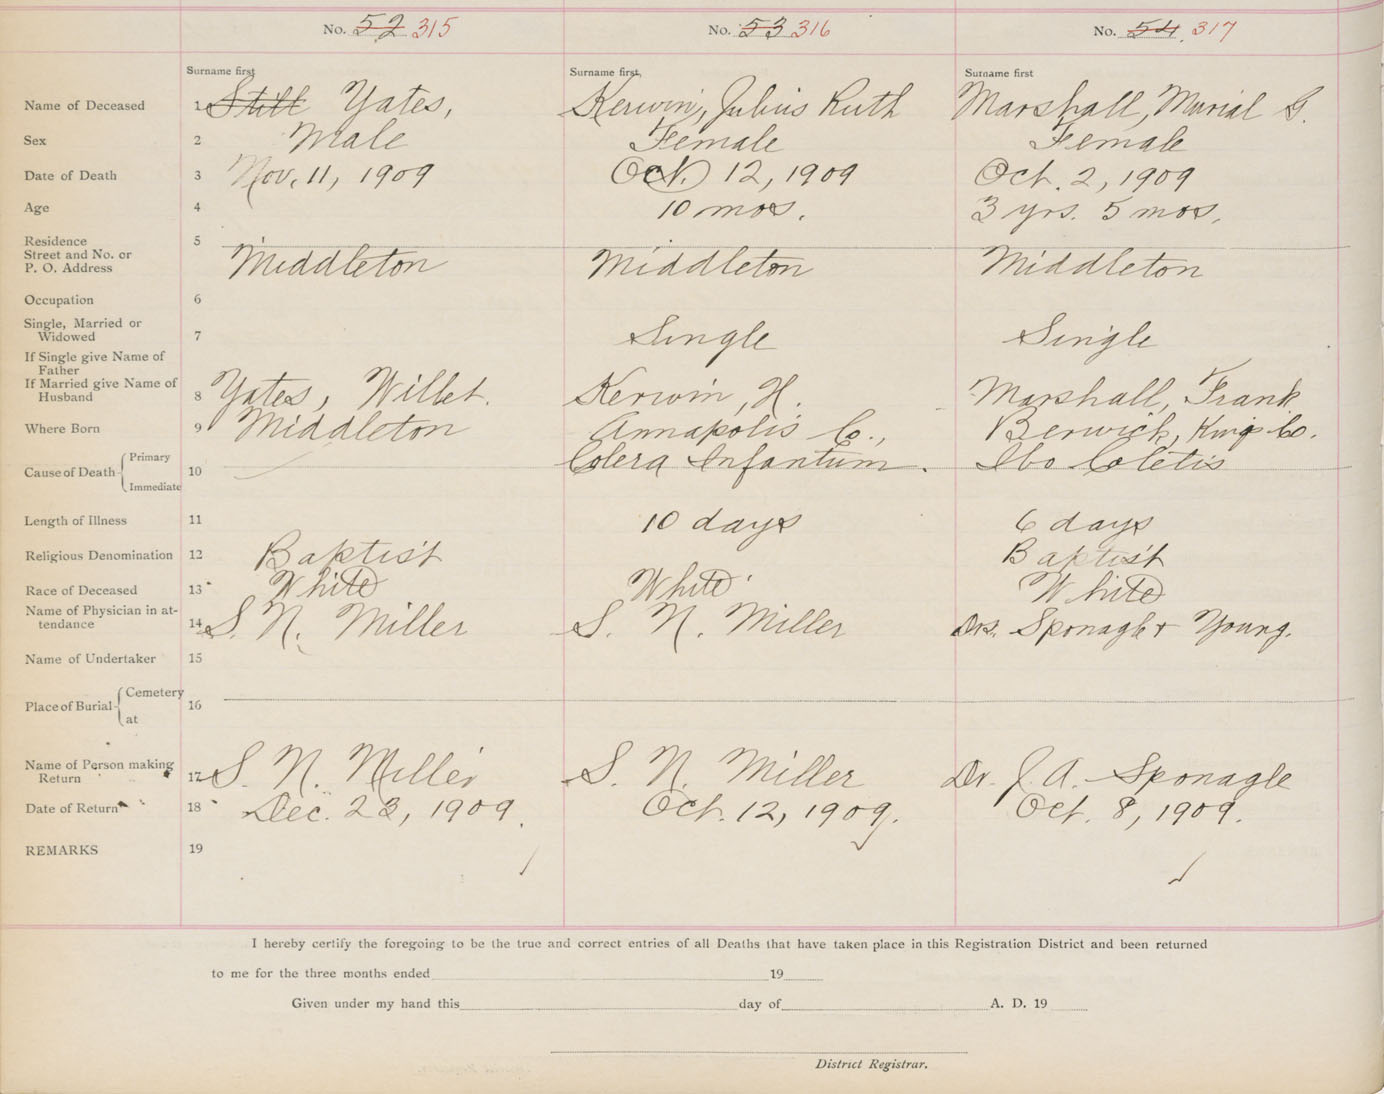 No. 52 315 No. 53 316 No. 54 317
Surname first Surname first, Surname first
Name of Deceased 1 Still Yates, Kerwin, Julius Ruth Marshall, Murial G.
Sex 2 Male Female Female
Date of Death 3 Nov. 11, 1909 Oct. 12, 1909 Oct. 2, 1909
Age 4 10 mos. 3 yrs. 5 mos.
Residence 5
Street and No. or
P. O. Address Middleton Middleton Middleton
Occupation 6
Single, Married or
Widowed 7 Single Single
If Single give Name of
Father
If Married give Name of
Husband 8 Yates, Willet. Kerwin, H. Marshall, Frank
Where Born 9 Middleton Annapolis Co., Berwick, Kings Co.
Cause of Death Primary 10 Colera Infantum. Ibo Coletis
Immediate
Length of Illness 11 10 days 6 days
Religious Denomination 12 Baptist Baptist
Race of Deceased 13 White White White
Name of Physician in at-
tendance 14 S. N. Miller S. N. Miller Drs. Sponagle + Young.
Name of Undertaker 15
Place of Burial Cemetery 16
at
Name of Person making
Return 17 S. N. Miller S. N. Miller Dr. J. A. Sponagle
Date of Return 18 Dec. 23, 1909. Oct. 12, 1909. Oct. 8, 1909.
REMARKS 19
I hereby certify the foregoing to be the true and correct entries of all Deaths that have taken place in this Registration District and been returned
to me for the three months ended 19
Given under my hand this day of A. D. 19
District Registrar.